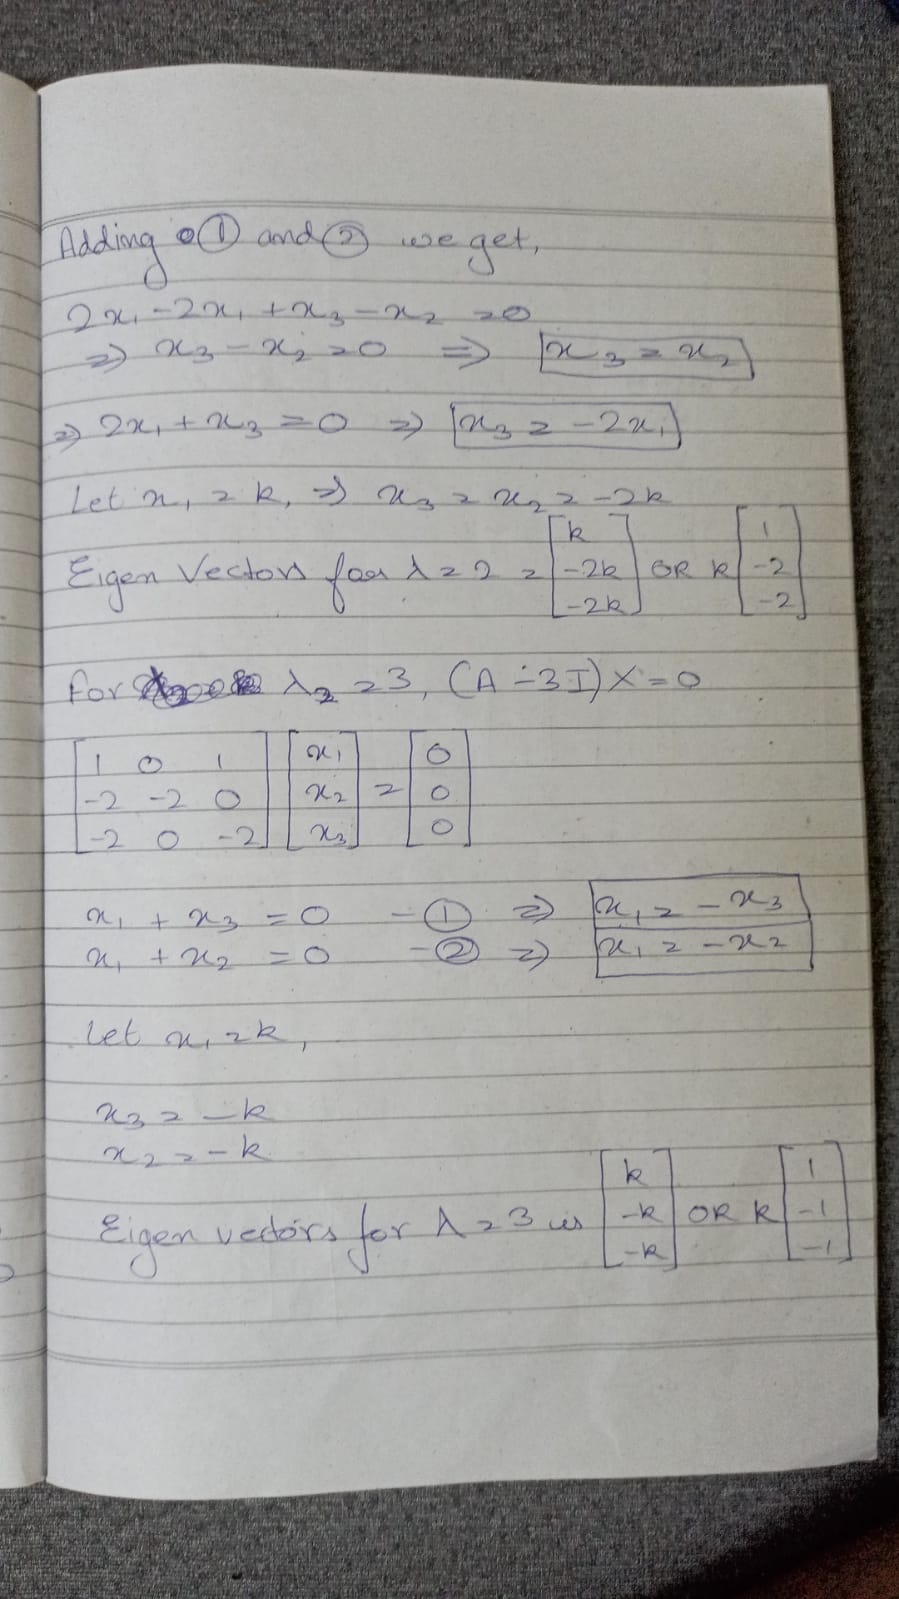 Adding ① and ② we get,
2x₁ - 2x₁ + x₃ - x₂ = 0
⇒ x₃ - x₂ = 0 ⇒ x₃ = x₂
⇒ 2x₁ + x₃ = 0 ⇒ x₃ = -2x₁
Let x₁ = k, ⇒ x₃ = x₂ = -2k
Eigen Vectors for λ = 2 = [k -2k -2k] OR k [1 -2 -2]
For λ₂ = 3, (A - 3I) X = 0
[1 0 1] [x₁] = [0]
[-2 -2 0] [x₂] [0]
[-2 0 -2] [x₃] [0]
x₁ + x₃ = 0 - ① ⇒ x₁ = -x₃
x₁ + x₂ = 0 - ② ⇒ x₁ = -x₂
Let x₁ = k,
x₃ = -k
x₂ = -k
Eigen vectors for λ = 3 is [k -k -k] OR k [1 -1 -1]